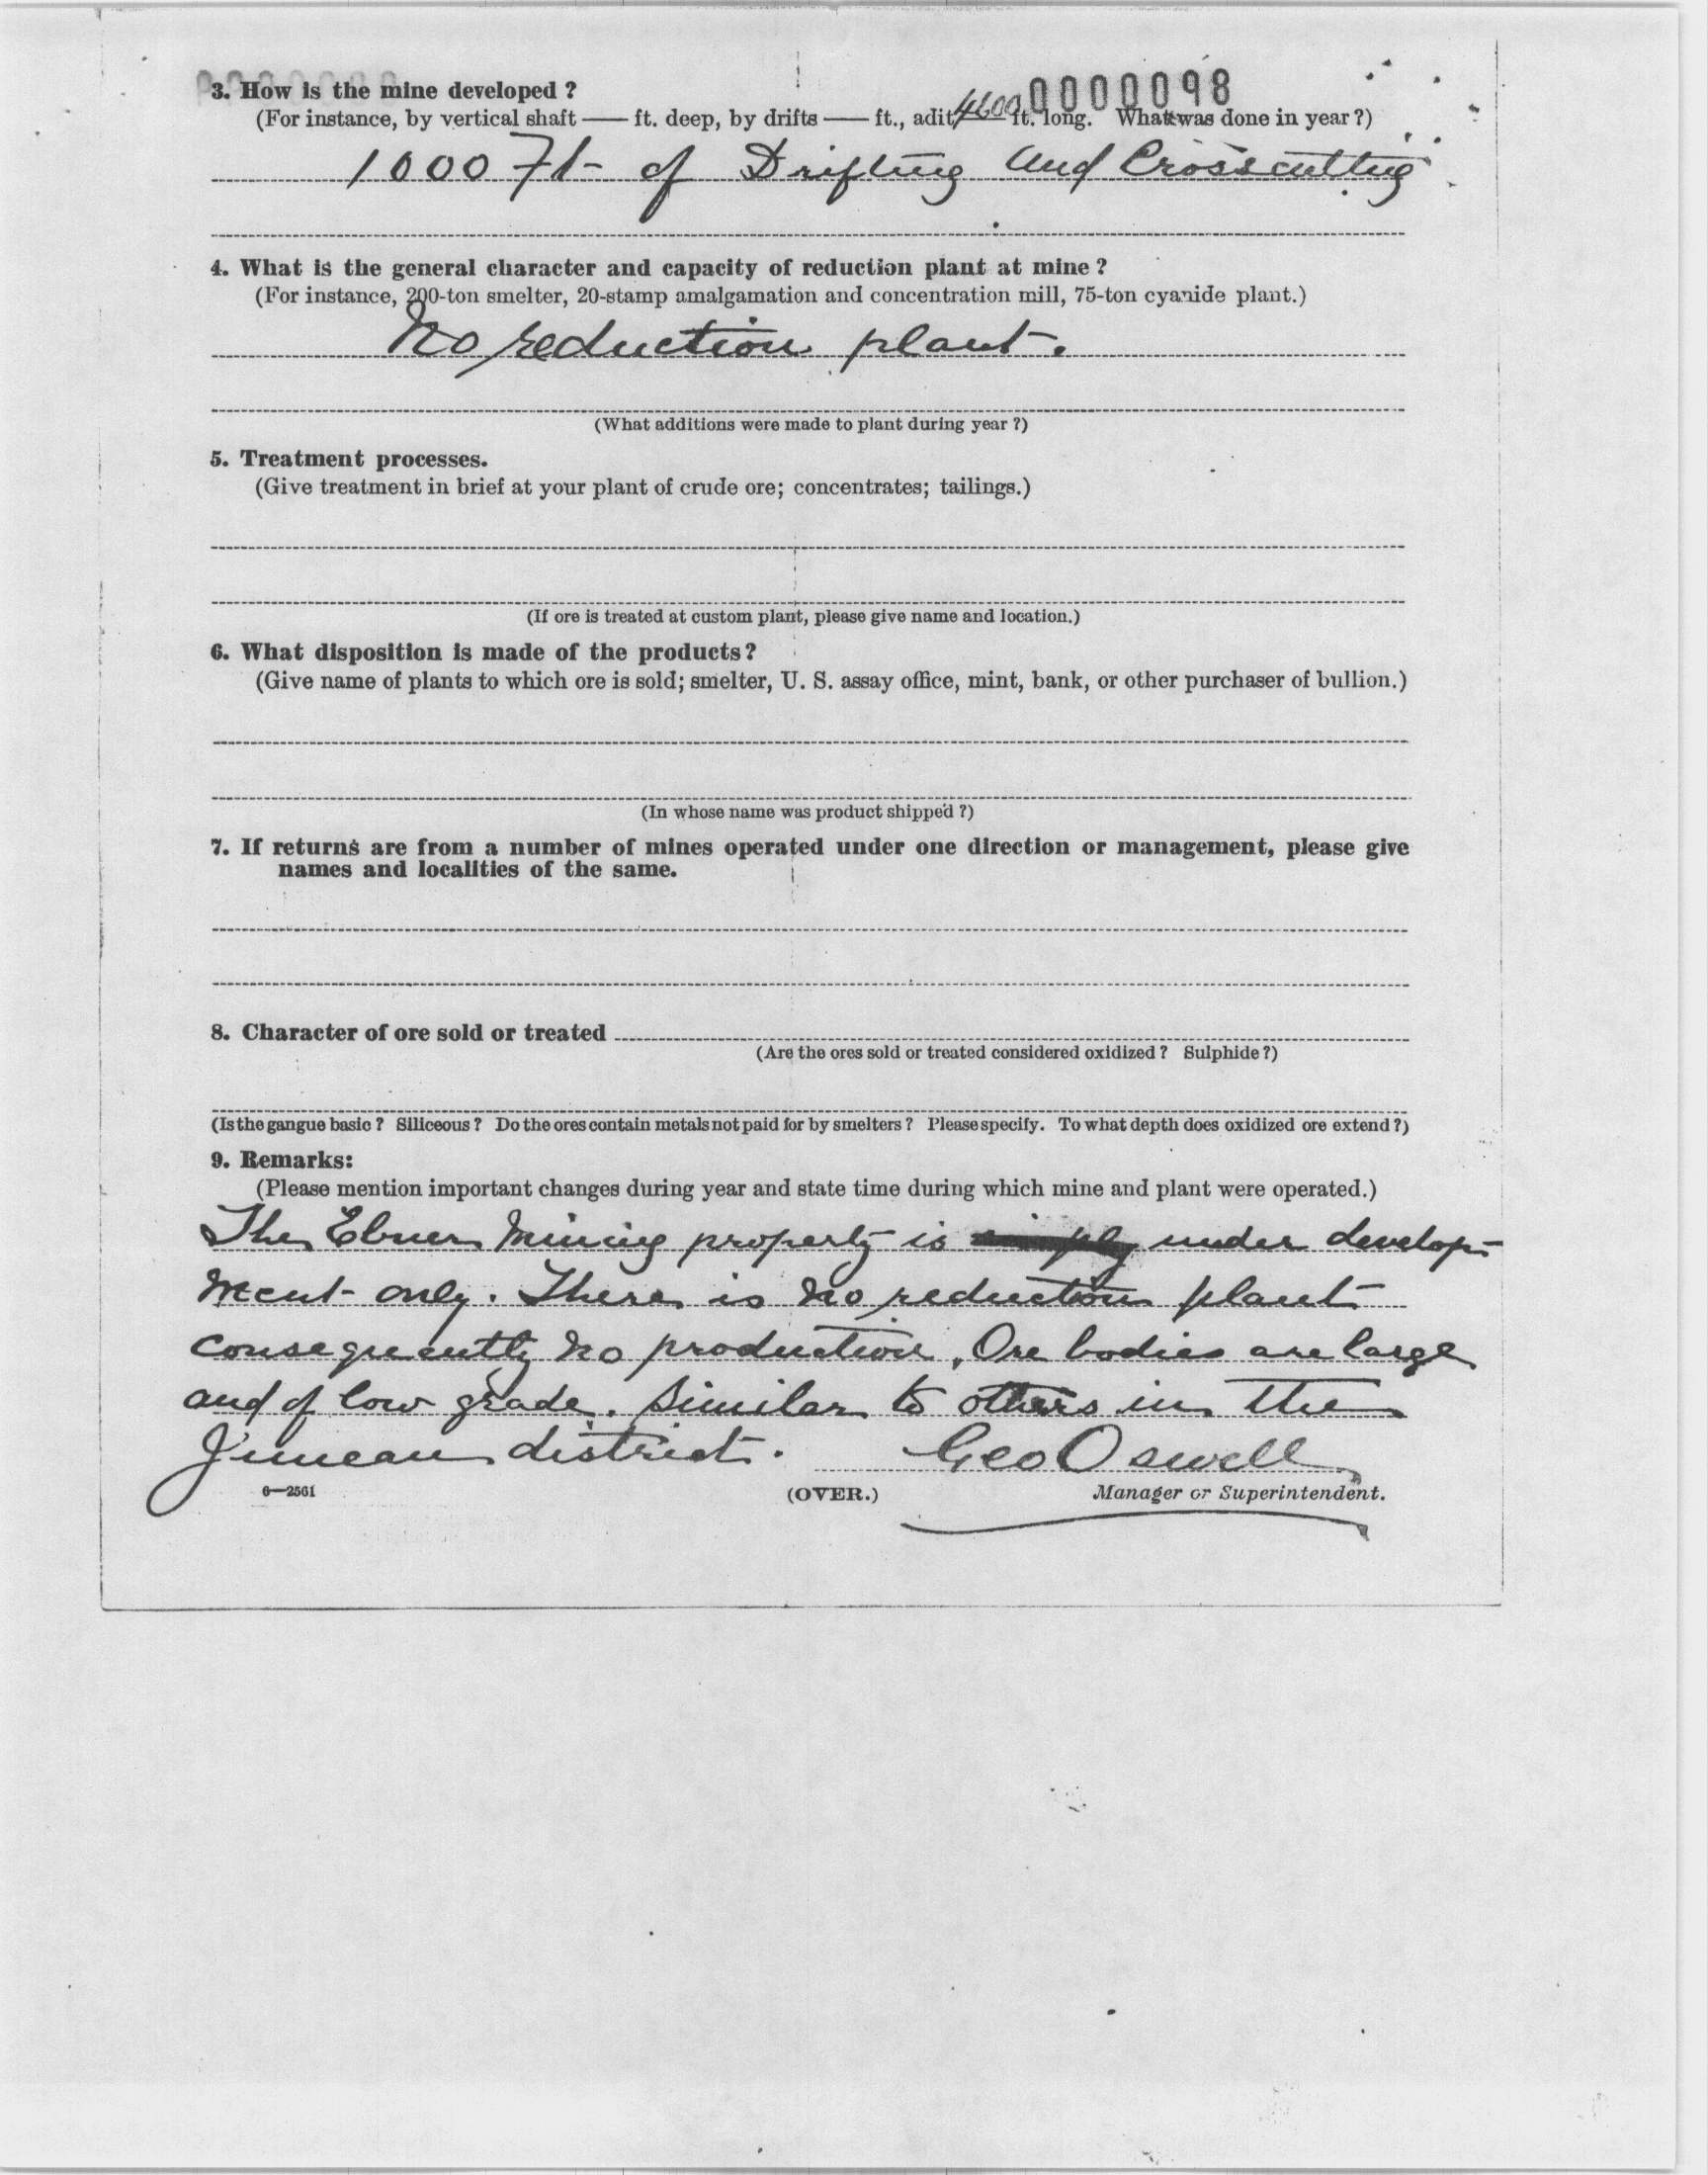 0000098
3. How is the mine developed ?
(For instance, by vertical shaft —— ft. deep, by drifts —— ft., adit 4600 ft. long. What was done in year ?)
1000 Ft of Drifting and Crosscutting
4. What is the general character and capacity of reduction plant at mine ?
(For instance, 200-ton smelter, 20-stamp amalgamation and concentration mill, 75-ton cyanide plant.)
No reduction plant.
(What additions were made to plant during year ?)
5. Treatment processes.
(Give treatment in brief at your plant of crude ore; concentrates; tailings.)
(If ore is treated at custom plant, please give name and location.)
6. What disposition is made of the products?
(Give name of plants to which ore is sold; smelter, U. S. assay office, mint, bank, or other purchaser of bullion.)
(In whose name was product shipped ?)
7. If returns are from a number of mines operated under one direction or management, please give
names and localities of the same.
8. Character of ore sold or treated
(Are the ores sold or treated considered oxidized ? Sulphide ?)
(Is the gangue basic ? Siliceous ? Do the ores contain metals not paid for by smelters ? Please specify. To what depth does oxidized ore extend ?)
9. Remarks:
(Please mention important changes during year and state time during which mine and plant were operated.)
The Ebner Mining property is under develop-
ment only. There is no reduction plant
consequently no production. Ore bodies are large
and of low grade. Similar to others in the
Juneau district. Geo Oswell
6—2561 (OVER.) Manager or Superintendent.